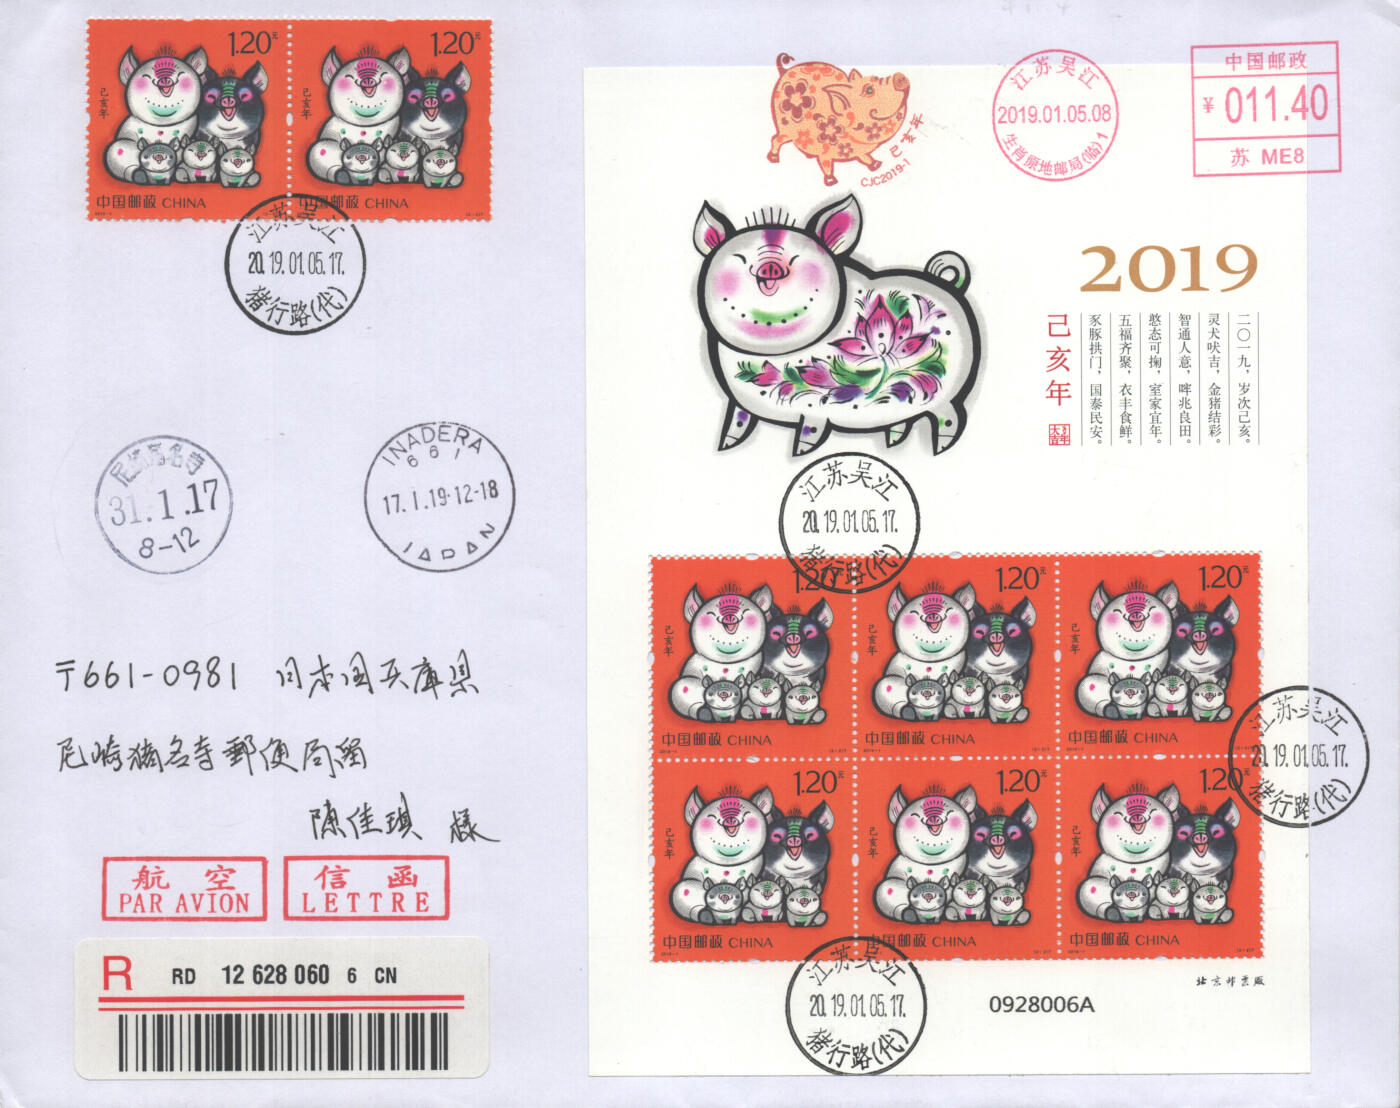 1.20元
己亥年
中国邮政 CHINA
1.20元
己亥年
中国邮政 CHINA
江苏吴江
2019.01.05.17.
猪行路(代)
己亥年
CJC2019-1
江苏吴江
2019.01.05.08
生肖原地邮局(临)1
中国邮政
¥ 011.40
苏 ME8
2019
己亥年
二〇一九，岁次己亥。
灵犬吠吉，金猪结彩。
智通人意，啤兆良田。
憨态可掬，室家宜年。
五福齐聚，衣丰食鲜。
豕豚拱门，国泰民安。
江苏吴江
2019.01.05.17.
猪行路(代)
尼崎猪名寺
31.1.17
8-12
INADERA
661
17.I.19·12-18
JAPAN
〒661-0981 日本国兵庫県
尼崎猪名寺郵便局留
陳佳琪 様
航空
PAR AVION
信函
LETTRE
R RD 12 628 060 6 CN
1.20元
己亥年
中国邮政 CHINA
1.20元
己亥年
中国邮政 CHINA
1.20元
己亥年
中国邮政 CHINA
江苏吴江
2019.01.05.17.
猪行路(代)
1.20元
己亥年
中国邮政 CHINA
1.20元
己亥年
中国邮政 CHINA
1.20元
己亥年
中国邮政 CHINA
江苏吴江
2019.01.05.17.
猪行路(代)
北京邮票厂
0928006A